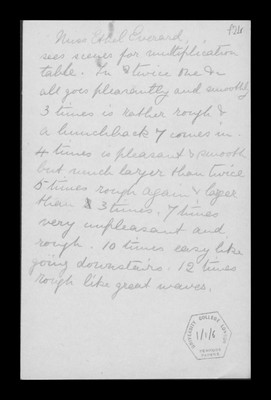 P2U
Miss Ethel Everard
sees scenes for multiplication
table. In twice one &c
all goes pleasantly and smoothly
3 times is rather rough &
a hunchback 7 comes in.
4 times is pleasant & smooth
but much larger than twice
5 times rough again & larger
than 3 times. 7 times
very unpleasant and
rough. 10 times easy like
going downstairs. 12 times
rough like great waves.
UNIVERSITY COLLEGE LONDON
1/1/6